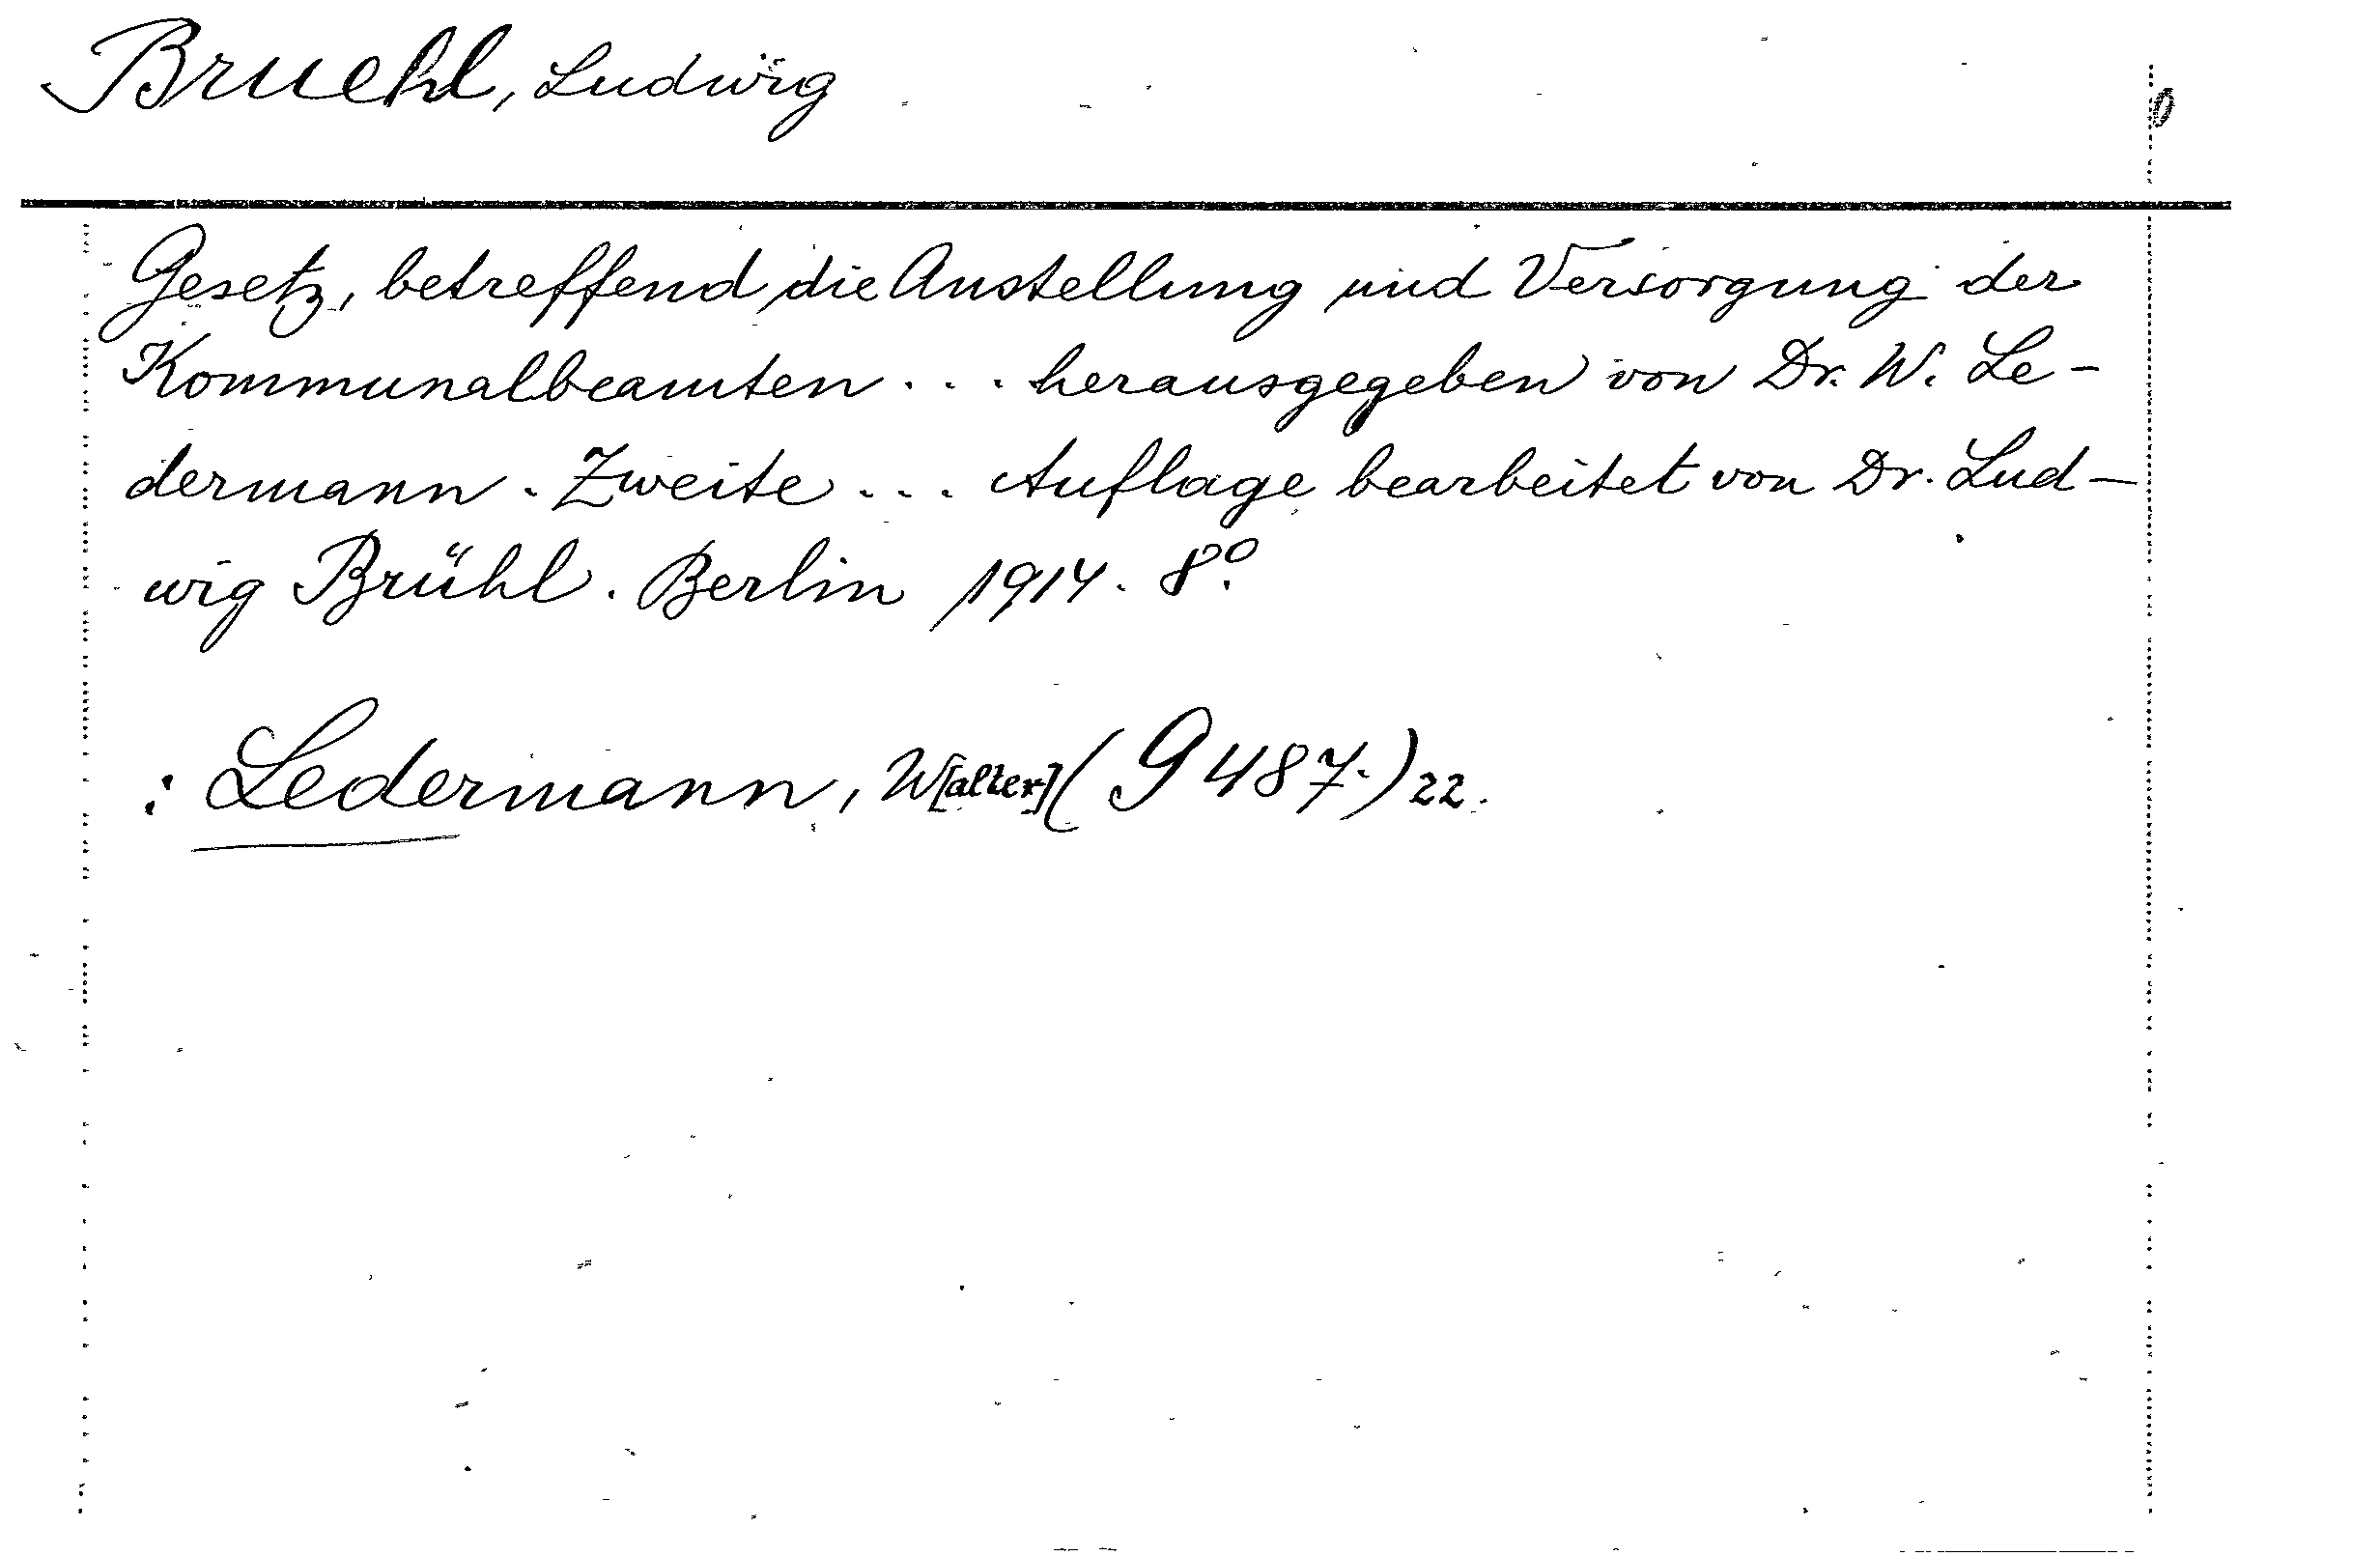 Bruehl, Ludwig
Gesetz, betreffend die Anstellung und Versorgung der
Kommunalbeamten ... herausgegeben von Dr. W. Le-
dermann. Zweite ... Auflage bearbeitet von Dr. Lud-
wig Brühl. Berlin 1914. 8º.
: Ledermann, W[alter] (G 487.) 22.